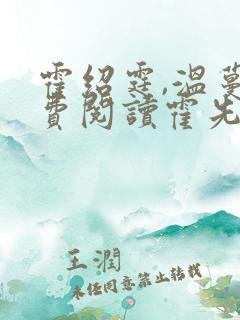 霍紹霆,溫蔓
費閱讀霍先
王潤
未经同意禁止转载